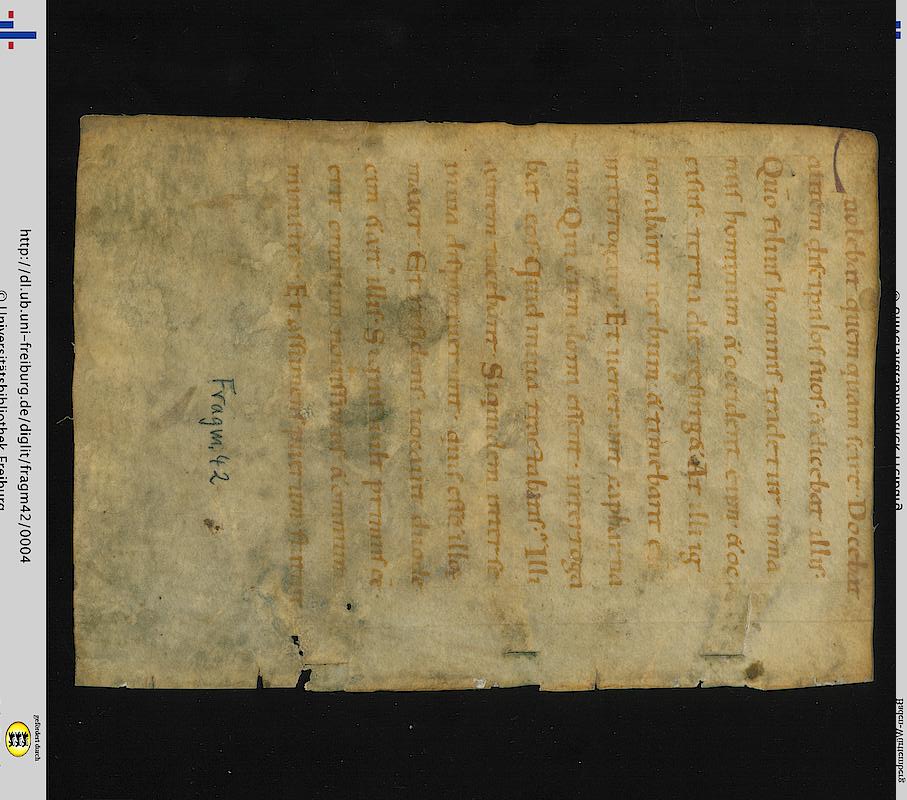 nolebat quemquam scire Docebat
autem discipulos suos & dicebat illis·
Quō filius hominis tradetur in ma
nus hominum & occident eum & oc
cisus tertia die resurg& At illi ig
norabant uerbum & timebant e
interrogare Et uenerunt capharna
um Qui cum domi essent· interroga
bat eos Quid in uia tractabatis Illi
autem tacebant Siquidem inter se
in uia disputauerant· quis esset illorū
maior Et residens uocauit duode
cim & ait illis· Siquis uult primus e
erit omnium nouissimus & omnium
minister· Et assumens puerum statuit
Fragm. 42
http://dl.ub.uni-freiburg.de/diglit/fragm42/0004
© Universitätsbibliothek Freiburg
gefördert durch